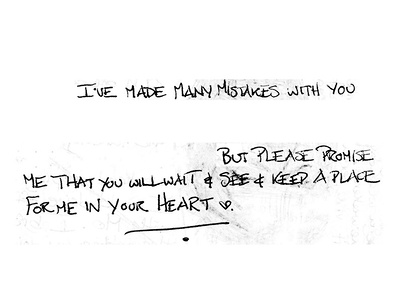 I'VE MADE MANY MISTAKES WITH YOU
BUT PLEASE PROMISE
ME THAT YOU WILL WAIT & SEE & KEEP A PLACE
FOR ME IN YOUR HEART ♥.